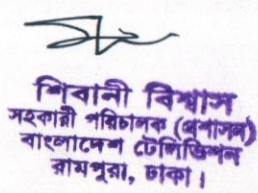 শিবানী বিশ্বাস
সহকারী পরিচালক (প্রশাসন)
বাংলাদেশ টেলিভিশন
রামপুরা, ঢাকা।